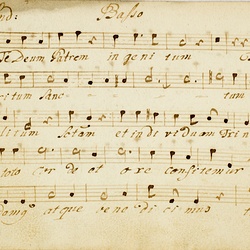 nd: Basso
Te Deum Patrem in ge ni tum
ritum Sanc tum
litum Sctam et in di vi duam Trin
toto cor de et o re confitemur
damq3 at que be ne di ci mus